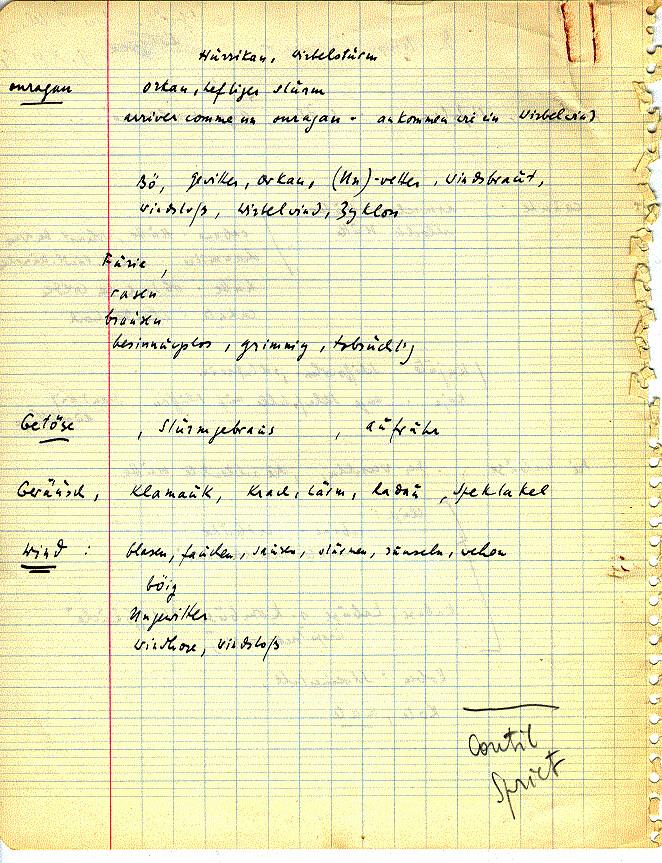 Hürrikan, Wirbelstürm
ouragan Orkan, heftiger Stürm
arriver comme un ouragan - ankommen wie ein Wirbelwind
Bö, Gewitter, Orkan, (Un)-wetter, Windsbraüt,
Windstoß, Wirbelwind, Zyklon
Fürie,
rasen
braüsen
besinnüngslos, grimmig, tobsüchtig
Getöse, Stürmgebraus, Aüfrühr
Geräüsch, Klamaük, Krach, Lärm, Radaü, Spektakel
Wind: blasen, faüchen, saüsen, stürmen, saüseln, wehen
böig
Ungewitter
Windhose, Windstoß
Contil
Sprict